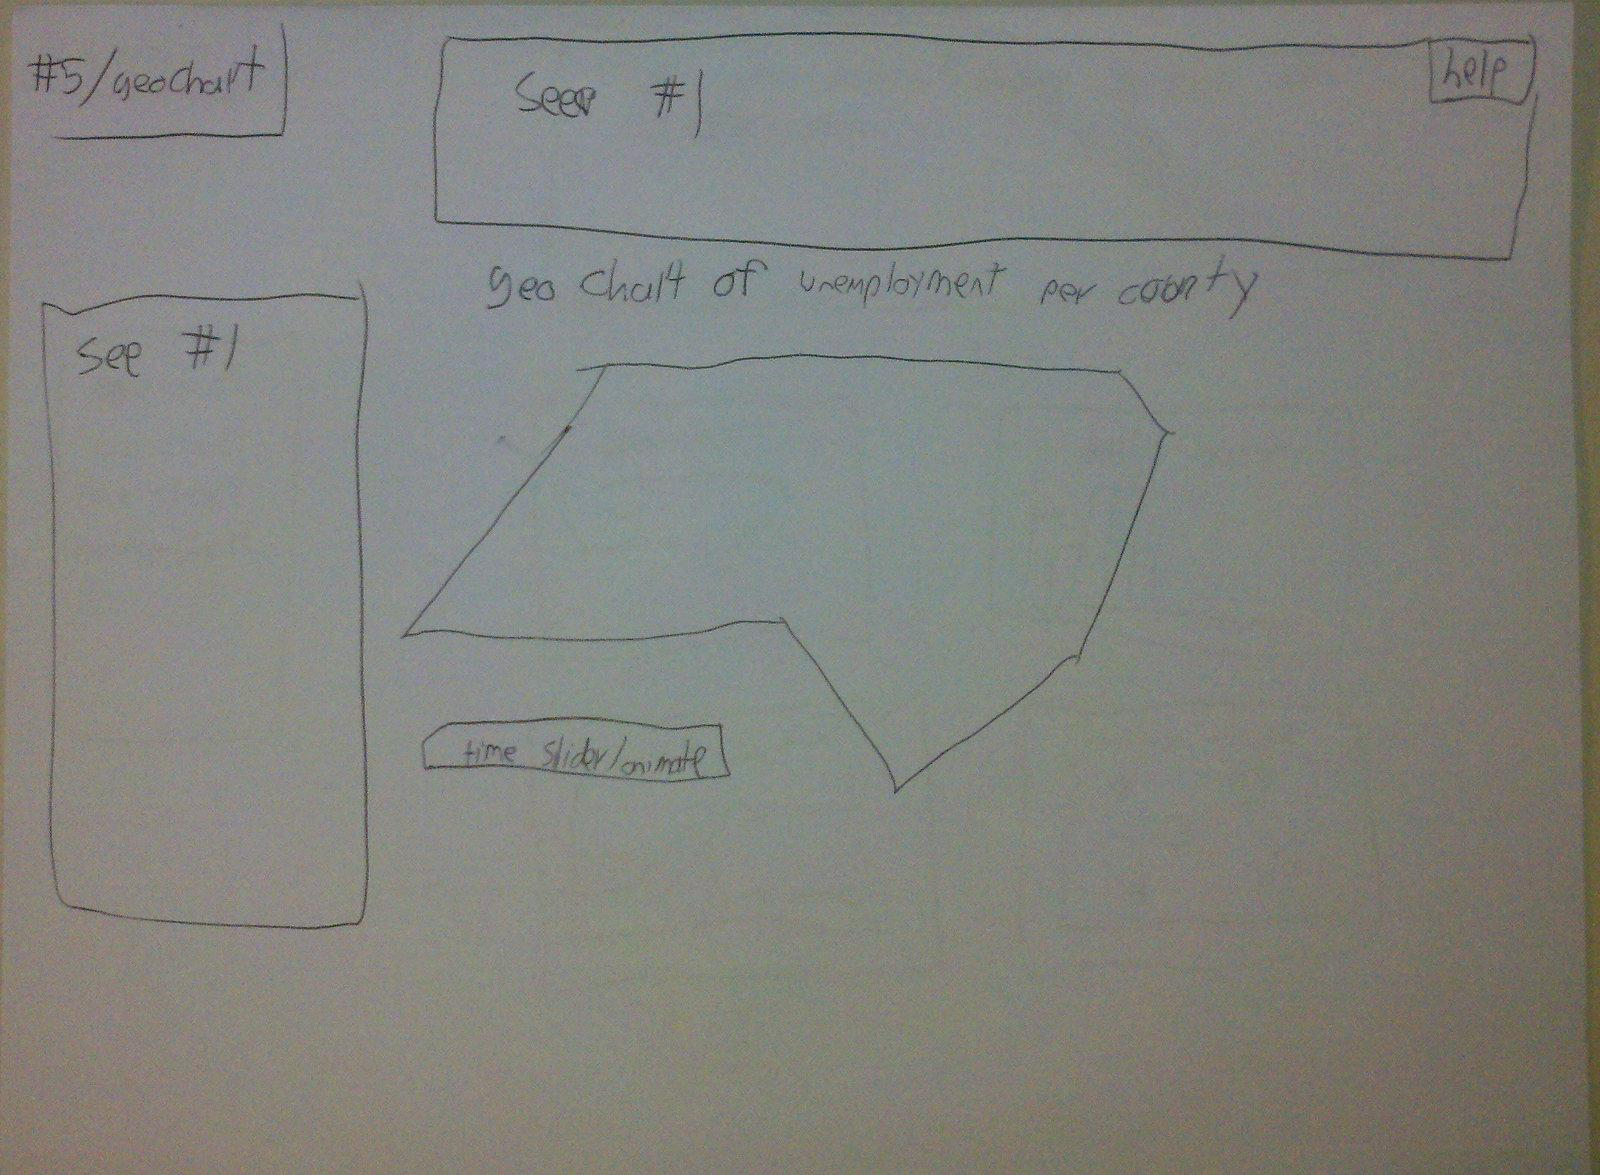 #5/geochart
See #1
help
geo chart of unemployment per county
see #1
time slider/animate